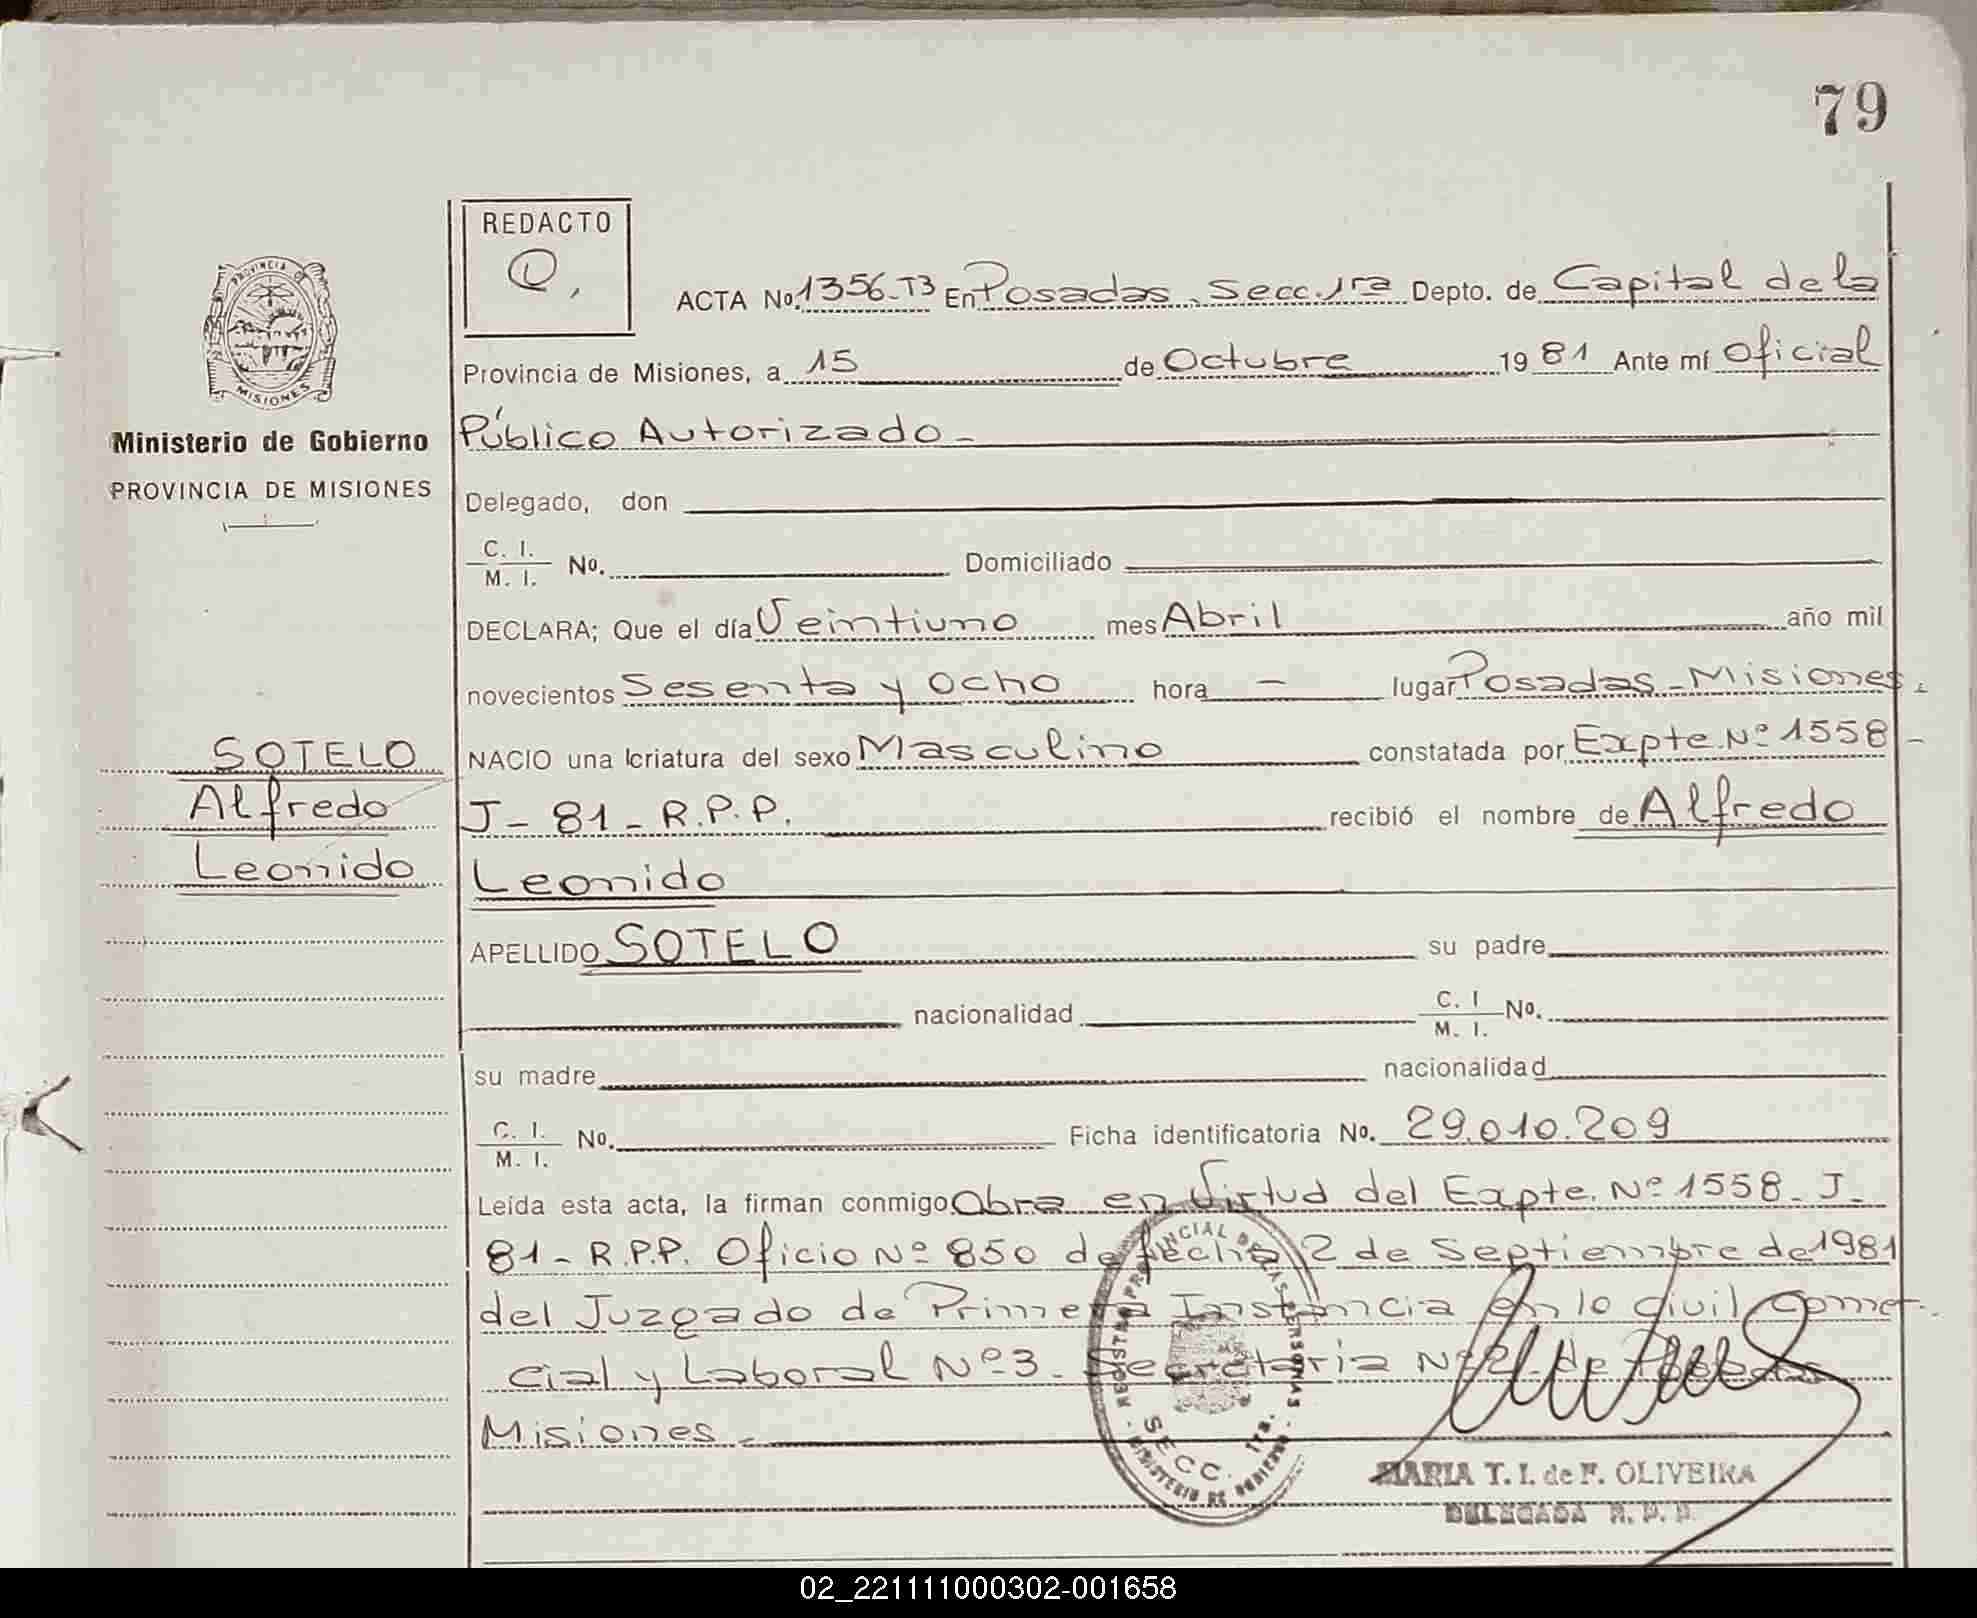 79
REDACTO
Q,
PROVINCIA DE
MISIONES
Ministerio de Gobierno
PROVINCIA DE MISIONES
SOTELO
Alfredo
Leonido
ACTA No. 1356-T3 En Posadas, Secc. 1ra Depto. de Capital de la
Provincia de Misiones, a 15 de Octubre 19 81 Ante mí Oficial
Público Autorizado -
Delegado, don
C. I.
M. I. No. Domiciliado
DECLARA; Que el día Veintiuno mes Abril año mil
novecientos Sesenta y Ocho hora - lugar Posadas - Misiones.
NACIO una criatura del sexo Masculino constatada por Expte. Nº 1558 -
J - 81 - R.P.P. recibió el nombre de Alfredo
Leonido
APELLIDO SOTELO su padre
nacionalidad C. I M. I. No.
su madre nacionalidad
C. I. M. I. No. Ficha identificatoria No. 29.010.209
Leída esta acta, la firman conmigo Obra en Virtud del Expte. Nº 1558 - J -
81 - R.P.P. Oficio Nº 850 de fecha 2 de Septiembre de 1981
del Juzgado de Primera Instancia en lo Civil Comer-
cial y Laboral Nº 3 - Secretaria Nº 2 - de Posadas
Misiones -
REGISTRO PROVINCIAL DE LAS PERSONAS
SECC. 1ra.
MINISTERIO DE GOBIERNO
MARIA T. I. de F. OLIVEIRA
DELEGADA R. P. P.
02_221111000302-001658